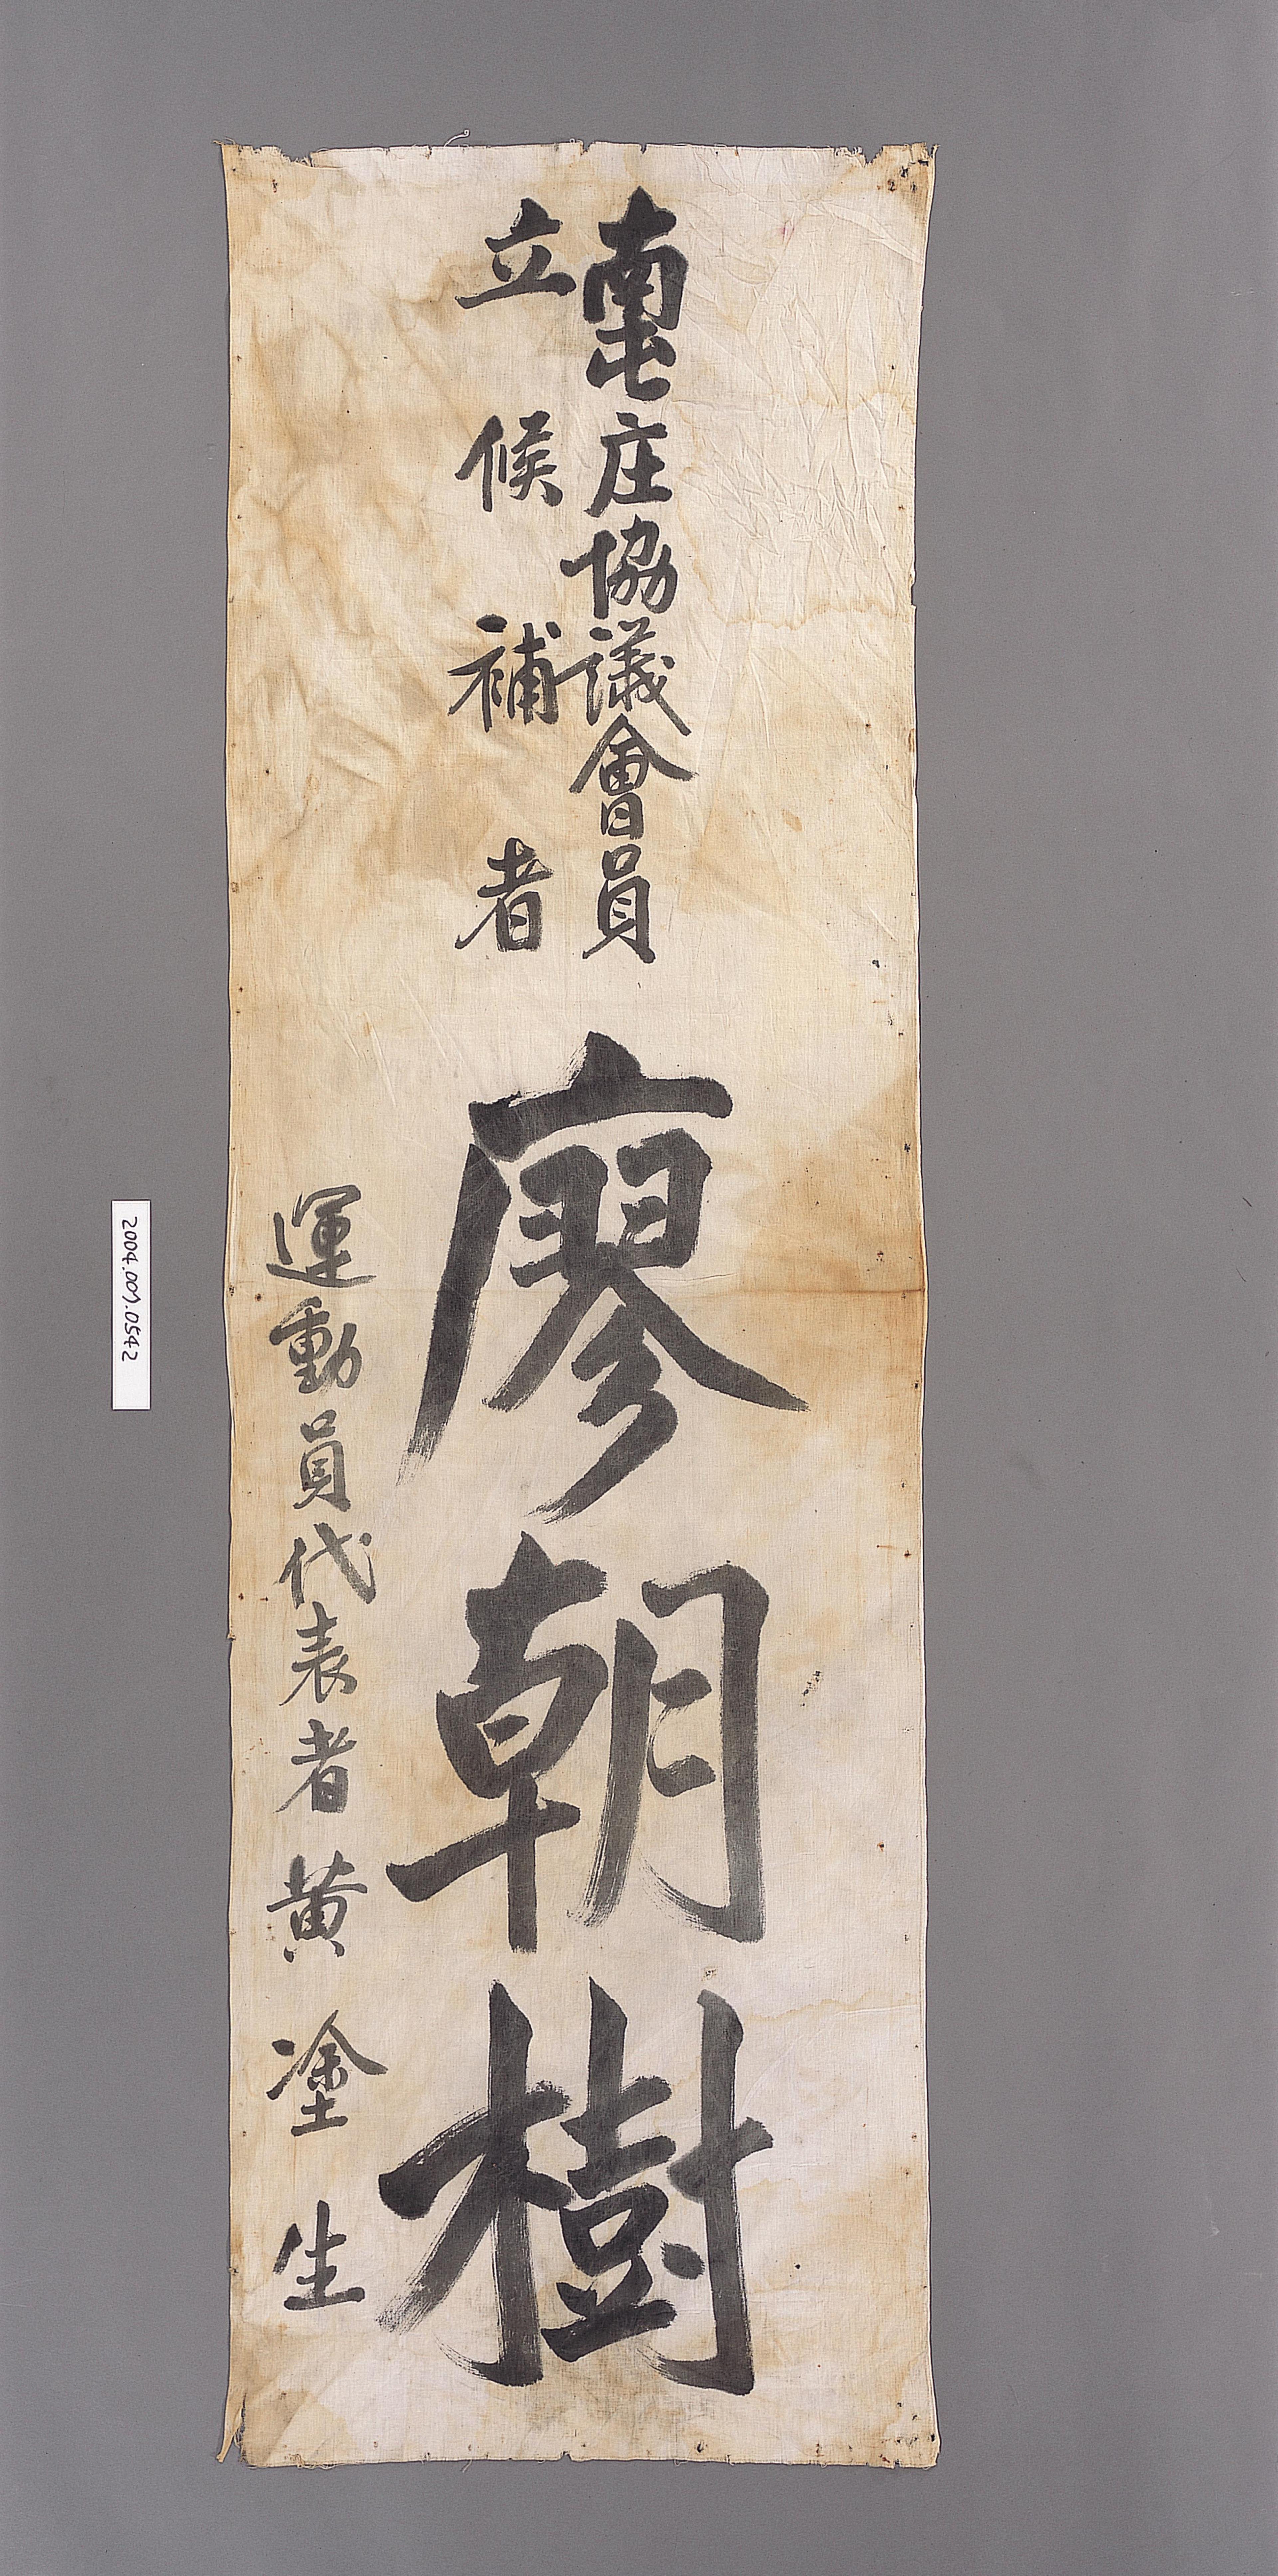 南屯庄協議會員
立候補者
廖朝樹
運動員代表者黄塗生
2004.007.0542